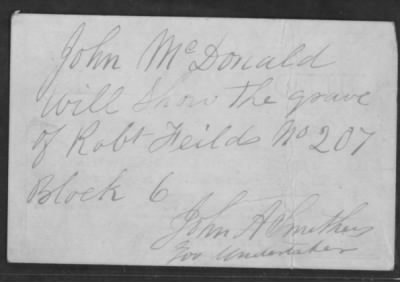 John McDonald
will show the grave
of Robt Feilds No 207
Block 6
John A Smithers
Gov Undertaker